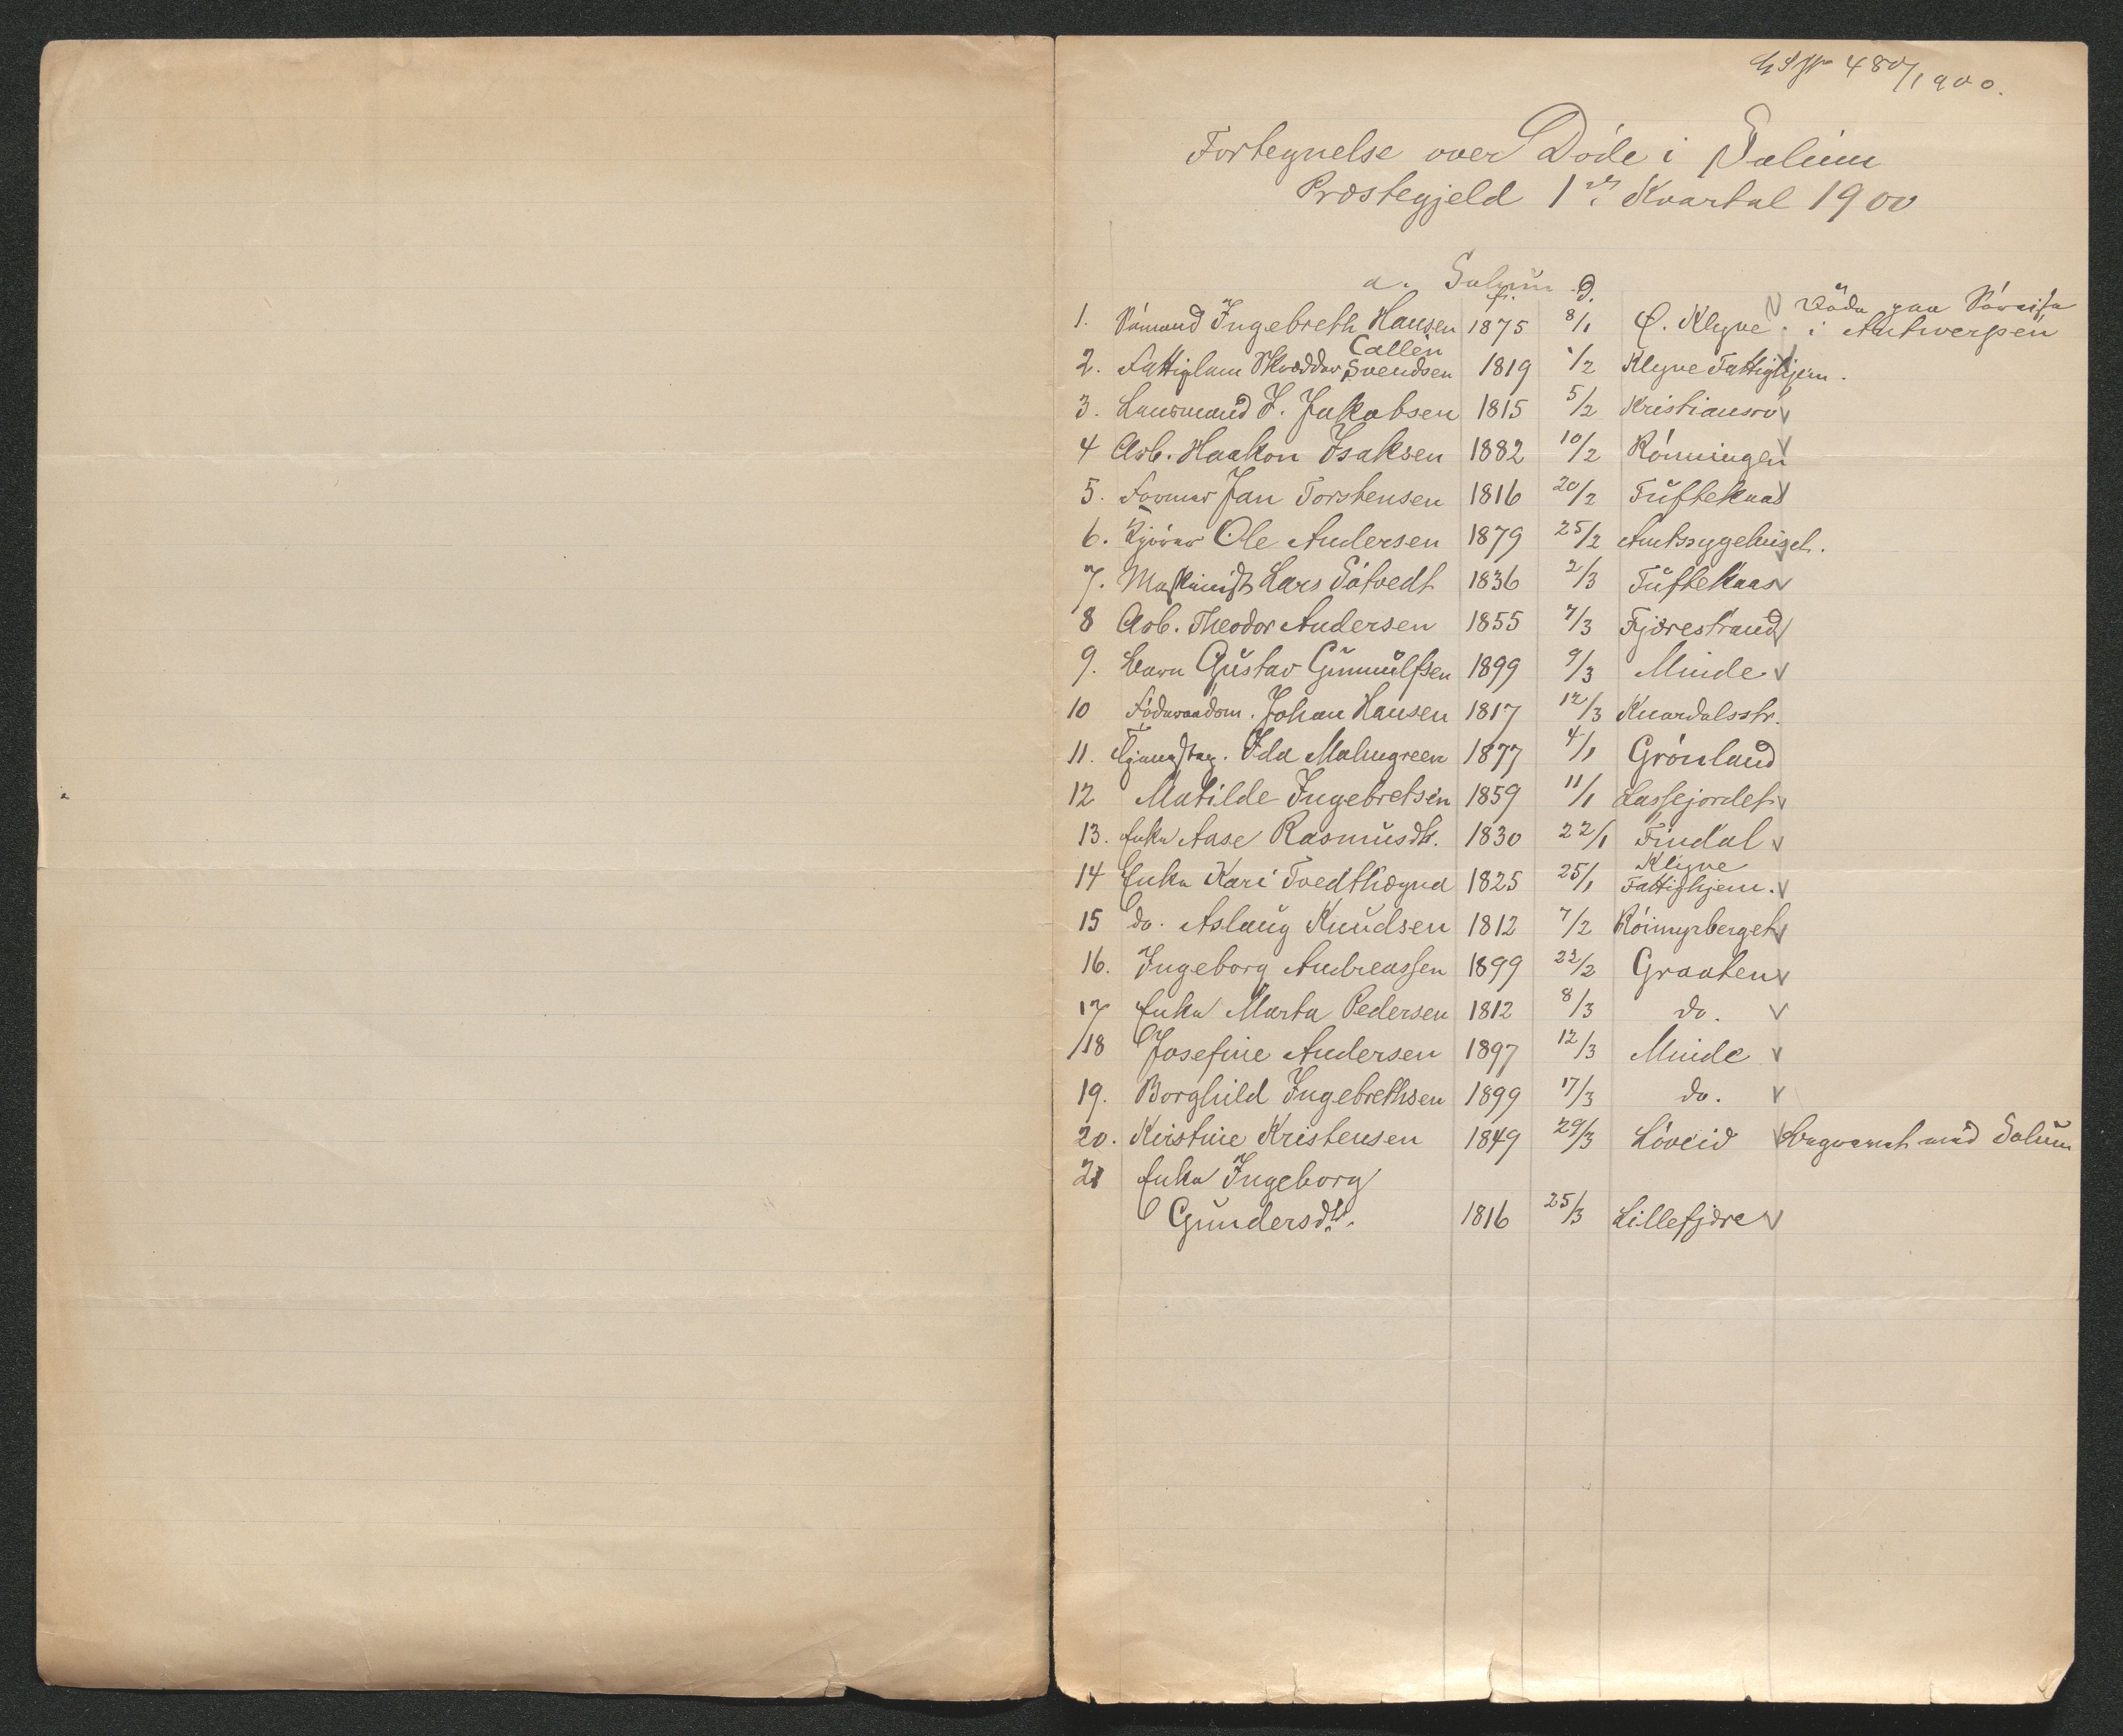 480/1900.
Fortegnelse over Døde i Solum
Præstegjeld 1ste Kvartal 1900
a. Solum
f. d.
Døde paa Søreise
1. Sømand Ingebreth Hansen 1875 8/1 Ø. Klyve i Antwerpen
Callèn
2. Fattiglem Skrædder Svendsen 1819 1/2 Klyve Fattighjem.
3. Lensmand I. Jakobsen 1815 5/2 Kristiansro
4 Arb. Haakon Isaksen 1882 10/2 Rønningen
5. Former Jan Torstensen 1816 20/2 Tuftekaas
6. Kjører Ole Andersen 1879 25/2 Amtssygehuset.
7. Maskinist Lars Sötvedt 1836 2/3 Tuftekaas
8 Arb. Theodor Andersen 1855 7/3 Fjærestrand
9. barn Gustav Gunnulfsen 1899 9/3 Minde
10 Føderaadsm. Johan Hansen 1817 12/3 Knardalsstr.
11. Tjenestep. Ida Malmgreen 1877 4/1 Grønland
12 Matilde Ingebretsen 1859 11/1 Lassejordet
13. Enke Aase Rasmusdtr. 1830 22/1 Findal
Klyve
14 Enke Kari Tvedthægna 1825 25/1 Fattighjem.
15 do. Aslaug Knudsen 1812 7/2 Røimyrberget
16. Ingeborg Andreassen 1899 22/2 Graaten
17 Enke Marta Pedersen 1812 8/3 do.
18 Josefine Andersen 1897 12/3 Minde
19. Borghild Ingebrethsen 1899 17/3 do.
20. Kirstine Kristensen 1849 29/3 Løveid begravet ved Solum
21 Enke Ingeborg
Gundersdtr. 1816 25/3 Lillefjære